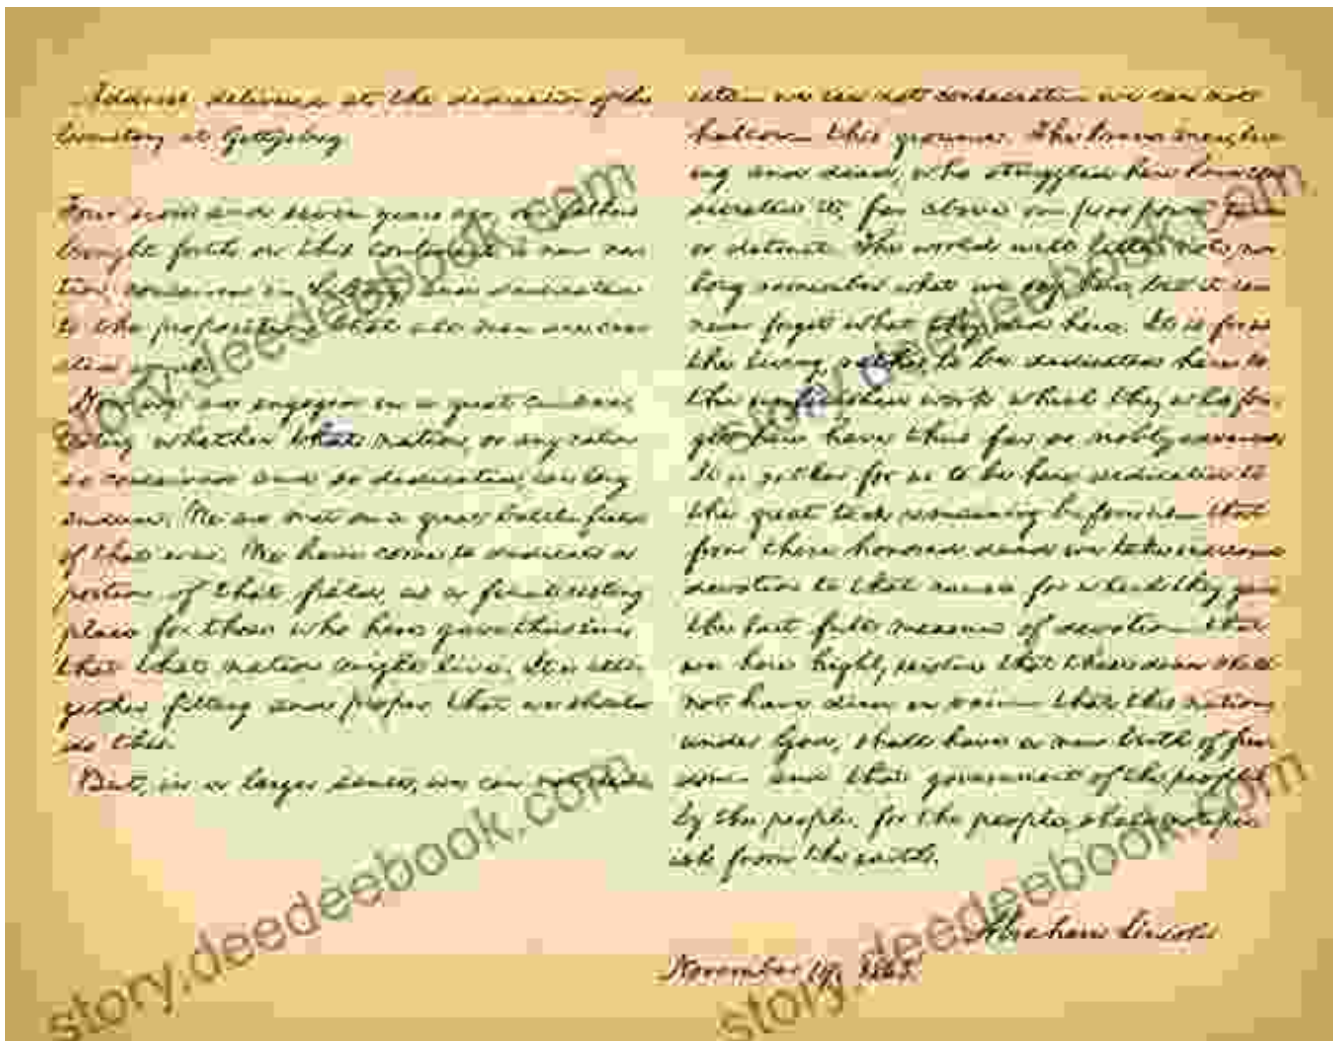 Address delivered at the dedication of the
Cemetery at Gettysburg.
Four score and seven years ago our fathers
brought forth on this continent a new na-
tion, conceived in Liberty, and dedicated
to the proposition that all men are cre-
ated equal.
Now we are engaged in a great civil war,
testing whether that nation, or any nation
so conceived and so dedicated, can long
endure. We are met on a great battle-field
of that war. We have come to dedicate a
portion of that field, as a final resting
place for those who here gave their lives
that that nation might live. It is alto-
gether fitting and proper that we should
do this.
But, in a larger sense, we can not dedi-
cate— we can not consecrate— we can not
hallow— this ground. The brave men, liv-
ing and dead, who struggled here have con-
secrated it, far above our poor power to add
or detract. The world will little note, nor
long remember what we say here, but it can
never forget what they did here. It is for us
the living, rather, to be dedicated here to
the unfinished work which they who fou-
ght here have thus far so nobly advanced.
It is rather for us to be here dedicated to
the great task remaining before us— that
from these honored dead we take increased
devotion to that cause for which they gave
the last full measure of devotion— that
we here highly resolve that these dead shall
not have died in vain— that this nation,
under God, shall have a new birth of free-
dom— and that government of the people,
by the people, for the people, shall not per-
ish from the earth.
Abraham Lincoln
November 19, 1863.
story.deedeebook.com
story.deedeebook.com
story.deedeebook.com
story.deedeebook.com